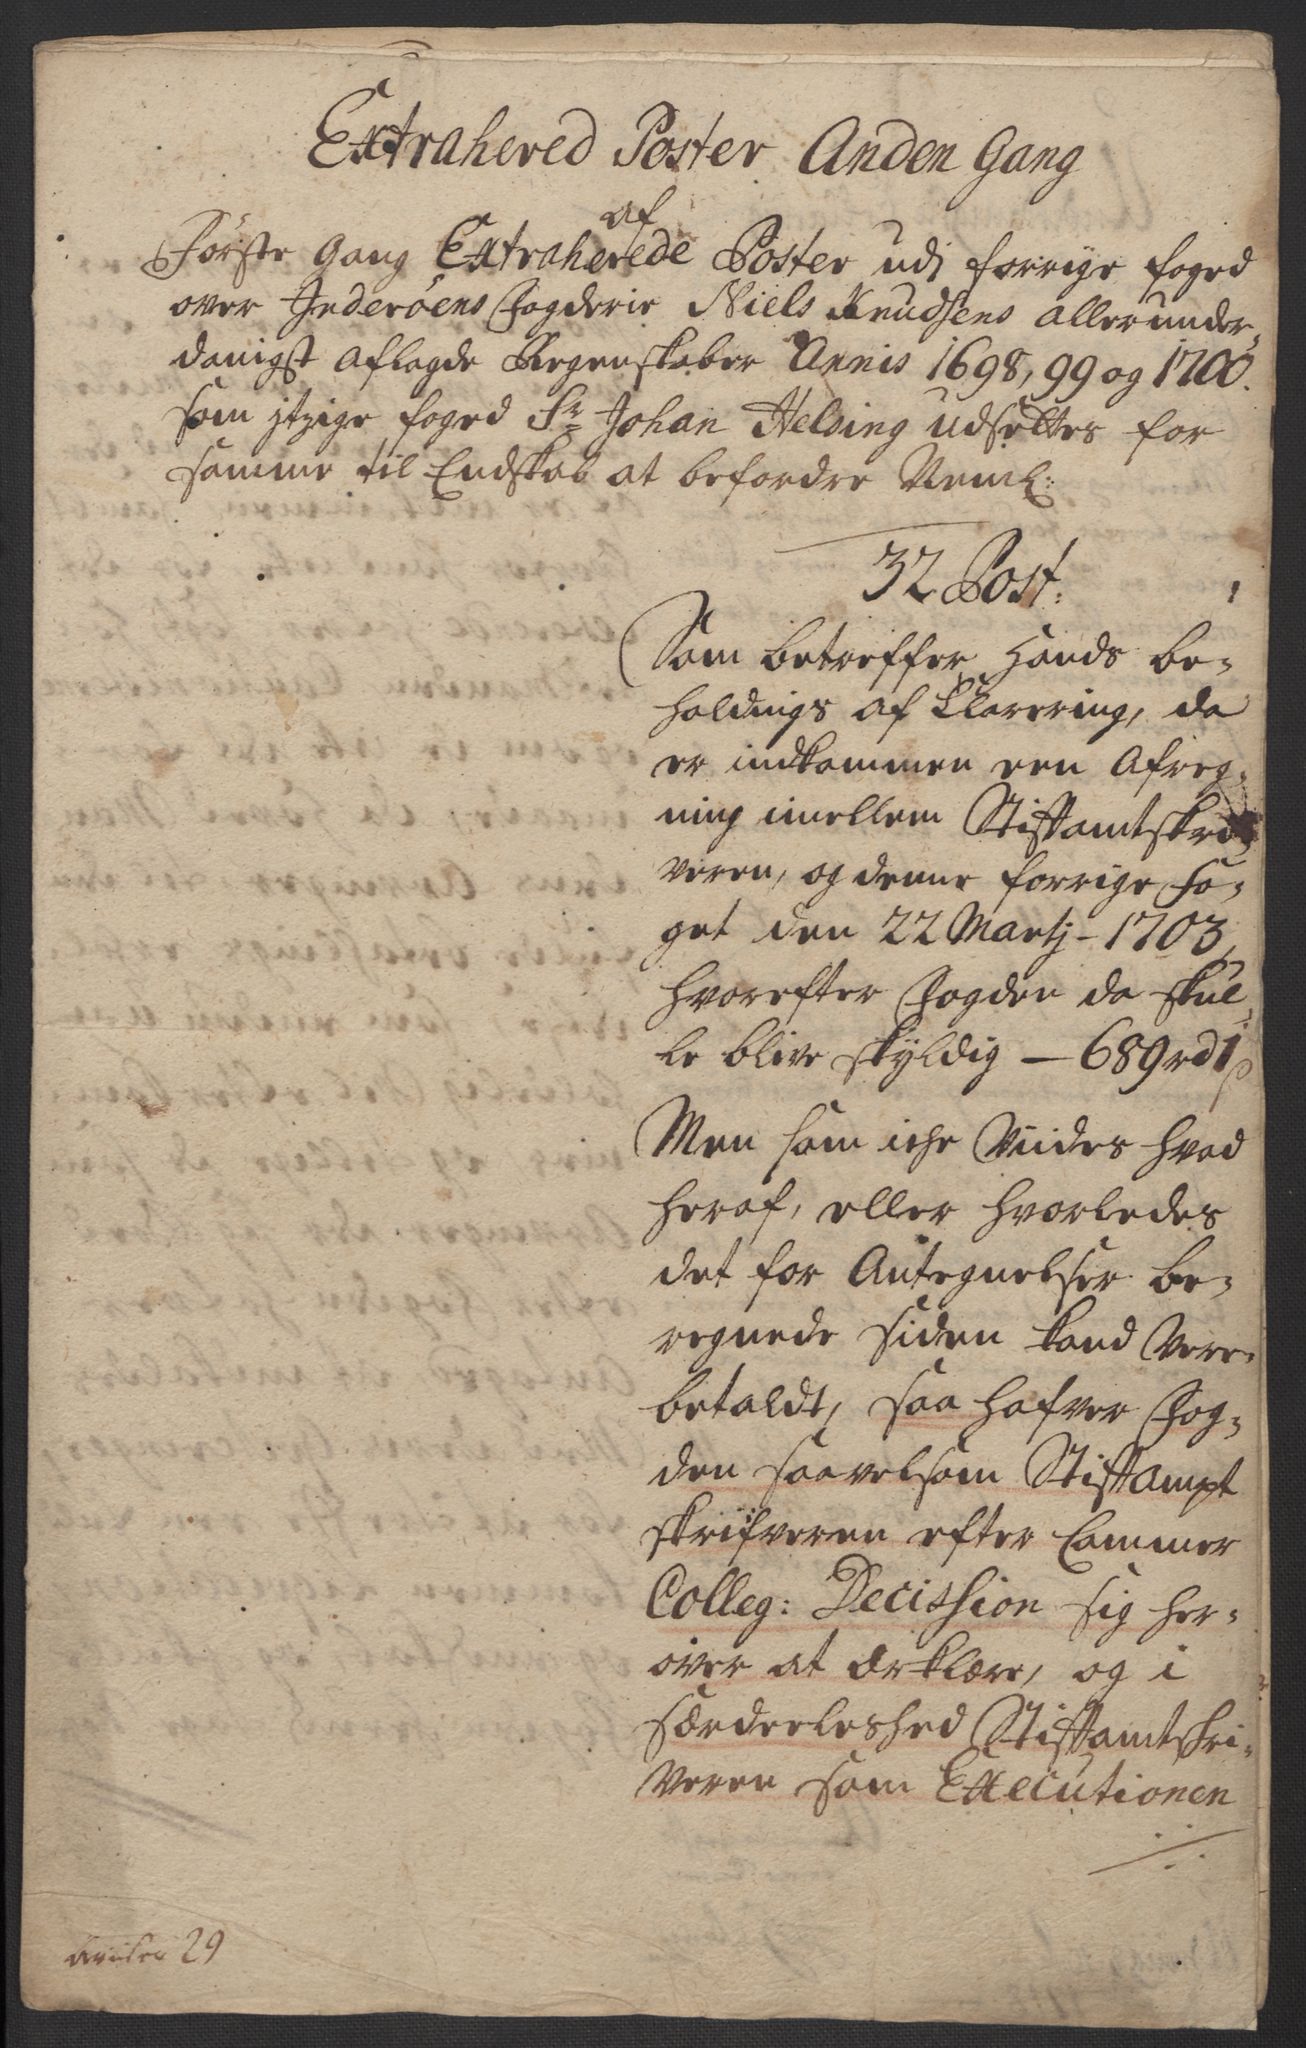 Extrahered Poster Anden Gang
af
Første Gang Extraherede Poster udj forrige foged
over Inderøens Fogderie Niels Knudsens allerunder-
danigst aflagde Regenskaber Annis 1698, 99 og 1700.
som itzige foged Sr Johan Helsing udsættes for
samme til Endskab at befordre Neml:
32 Post: 1
Som betreffer hands be-
holdnings af Clarering, da
er indkommen een Afreg-
ning imellem Stiftamtskri-
veren, og denne forrige Fo-
get den 22 Martj - 1703,
hvorefter Fogden da skul-
le blive skyldig — 689 rd 1 s
Men som iche Viides hvad
heraf, eller hvorledes
det for Antegnelser be-
regnede siden kand Være
betaldt, saa hafver Fog-
den saavelsom Stiftampt
skrifveren efter Cammer
Colleg: Decission sig her-
over at erklære, og i
særdeeleshed Stiftamtskri-
veren som Executionen
29